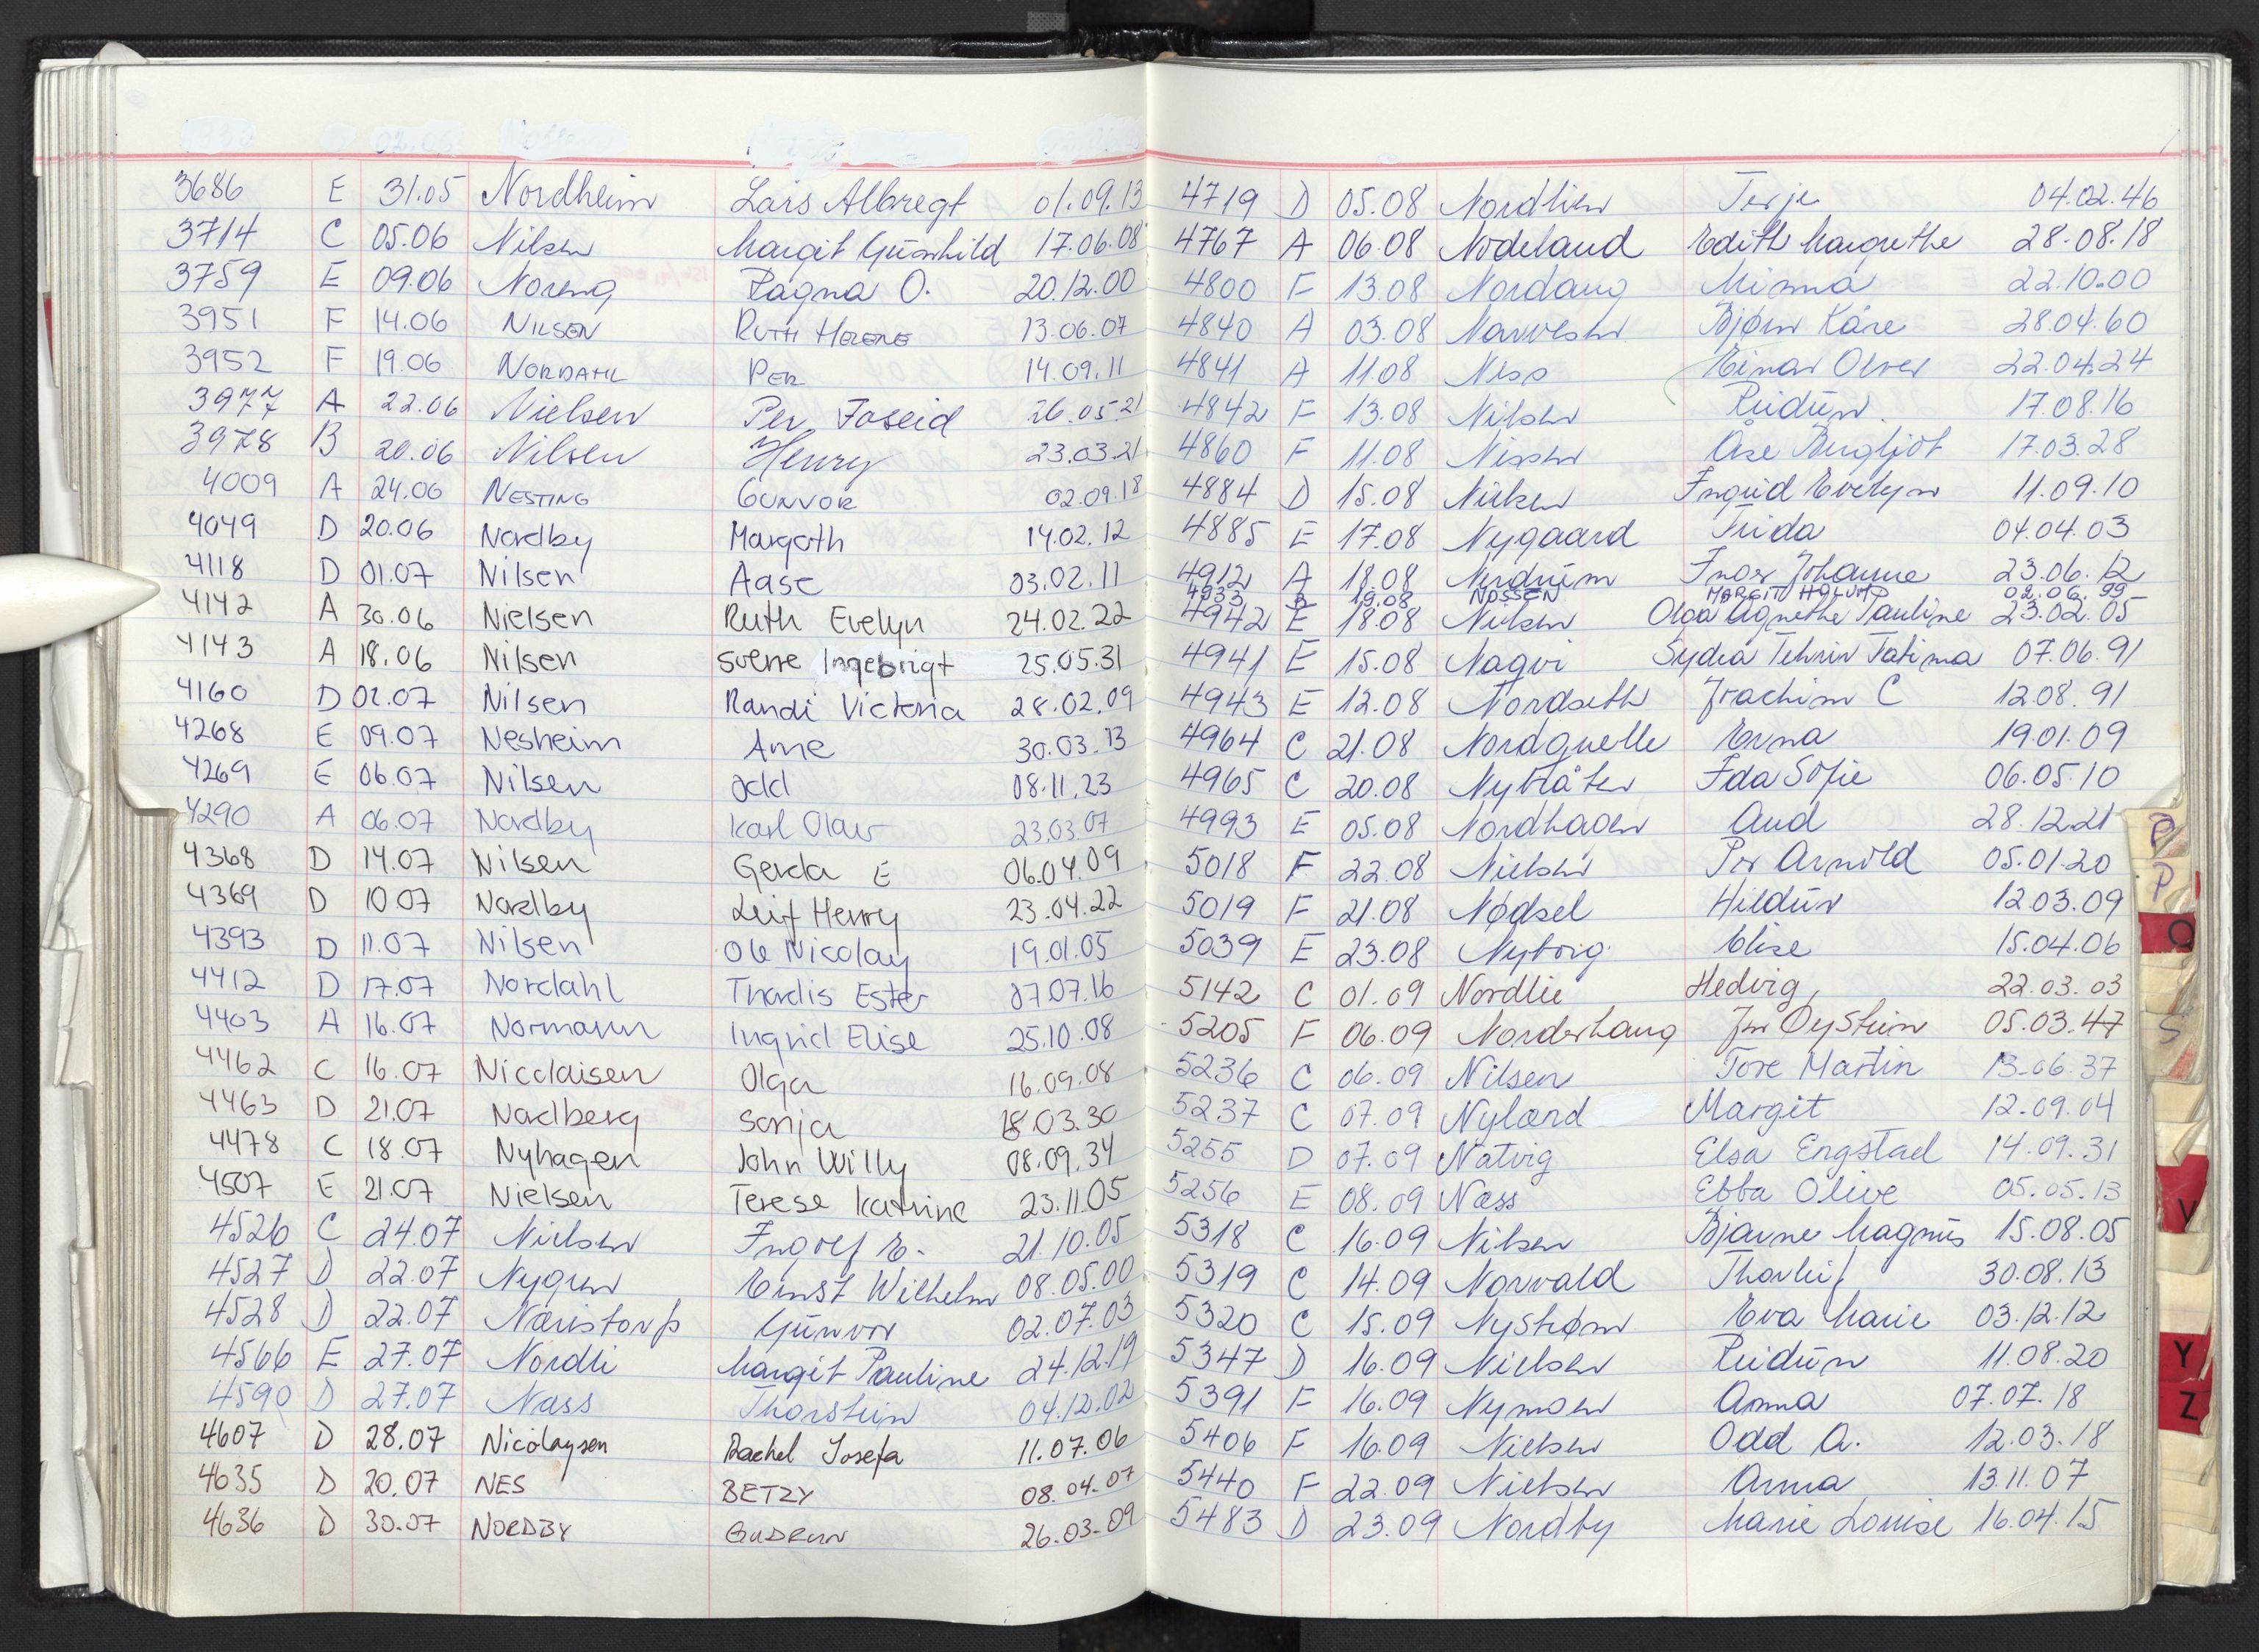 3686 E 31.05 Nordheim Lars Albregt 01.09.13
3714 C 05.06 Nilsen Margit Gunhild 17.06.08
3759 E 09.06 Noreng Ragna O. 20.12.00
3951 F 14.06 NILSEN RUTH HELENE 13.06.07
3952 F 19.06 NORDAHL PER 14.09.11
3977 A 22.06 Nielsen Per 26.05.21
3978 B 20.06 Nilsen Henry 23.03.21
4009 A 24.06 NESTING GUNVOR 02.09.18
4049 D 20.06 Nordby Margoth 14.02.12
4118 D 01.07 Nilsen Aase 03.02.11
4142 A 30.06 Nielsen Ruth Evelyn 24.02.22
4143 A 18.06 Nilsen Sverre Ingebrigt 25.05.31
4160 D 02.07 Nilsen Randi Victoria 28.02.09
4268 E 09.07 Nesheim Arne 30.03.13
4269 E 06.07 Nilsen Odd 08.11.23
4290 A 06.07 Nordby Karl Olav 23.03.07
4368 D 14.07 Nilsen Gerda E 06.04.09
4369 D 10.07 Nordby Leif Henry 23.04.22
4393 D 11.07 Nilsen Ole Nicolay 19.01.05
4412 D 17.07 Nordahl Thordis Ester 07.07.16
4403 A 16.07 Normann Ingrid Elise 25.10.08
4462 C 16.07 Nicolaisen Olga 16.09.08
4463 D 21.07 Nordberg Sonja 18.03.30
4478 C 18.07 Nyhagen John Willy 08.09.34
4507 E 21.07 Nielsen Terese Katrine 23.11.05
4526 C 24.07 Nielsen Ingolf E. 21.10.05
4527 D 22.07 Nygren Ernst Wilhelm 08.05.00
4528 D 22.07 Gunvor 02.07.03
4566 E 27.07 Nordli Margit Pauline 24.12.19
4590 D 27.07 Næss Thorstein 04.12.02
4607 D 28.07 Nicolaysen Rachel Josefa 11.07.06
4635 D 20.07 NES BETZY 08.04.07
4636 D 30.07 NORDBY GUDRUN 26.03.09
4719 D 05.08 Nordlien Terje 04.02.46
4767 A 06.08 Nodeland Edith Margrethe 28.08.18
4800 F 13.08 Nordaug Minna 22.10.00
4840 A 03.08 Narvesen Bjørn Kåre 28.04.60
4841 A 11.08 Ness Einar Oliver 22.04.24
4842 F 13.08 Nilsen Reidun 17.08.16
4860 F 11.08 Nissen Åse Bergljot 17.03.28
4884 D 15.08 Nielsen Ingrid Evelyn 11.09.10
4885 E 17.08 Nygaard Frida 04.04.03
4912 A 18.08 Nerdrum Inger Johanne 23.06.12
4933 B 19.08 NOSSEN MARGIT HOLUM 02.06.99
4942 E 18.08 Nielsen Olga Agnethe Pauline 23.02.05
4941 E 15.08 Naqvi Sydra Tehrin Fatima 07.06.91
4943 E 12.08 Nordseth Joachim C 12.08.91
4964 C 21.08 Nordguelle Erna 19.01.09
4965 C 20.08 Nybråten Ida Sofie 06.05.10
4993 E 05.08 Nordhagen Aud 28.12.21
5018 F 22.08 Nielsen Per Arnold 05.01.20
5019 F 21.08 Nødsel Hildur 12.03.09
5039 E 23.08 Nyborg Elise 15.04.06
5142 C 01.09 Nordlie Hedvig 22.03.03
5205 F 06.09 Norderhaug Jon Øystein 05.03.47
5236 C 06.09 Nilsen Tore Martin 13.06.37
5237 C 07.09 Nylænd Margit 12.09.04
5255 D 07.09 Natvig Elsa Engstad 14.09.31
5256 E 08.09 Næss Ebba Olive 05.05.13
5318 C 16.09 Nilsen Bjarne Magnus 15.08.05
5319 C 14.09 Norvald Thorleif 30.08.13
5320 C 15.09 Nystrøm Eva Marie 03.12.12
5347 D 16.09 Nielsen Reidun 11.08.20
5391 F 16.09 Nymoen Anna 07.07.18
5406 F 16.09 Nielsen Odd A. 12.03.18
5440 F 22.09 Nielsen Anna 13.11.07
5483 D 23.09 Nordby Marie Louise 16.04.15
P
P
Q
S
V
Y
Z